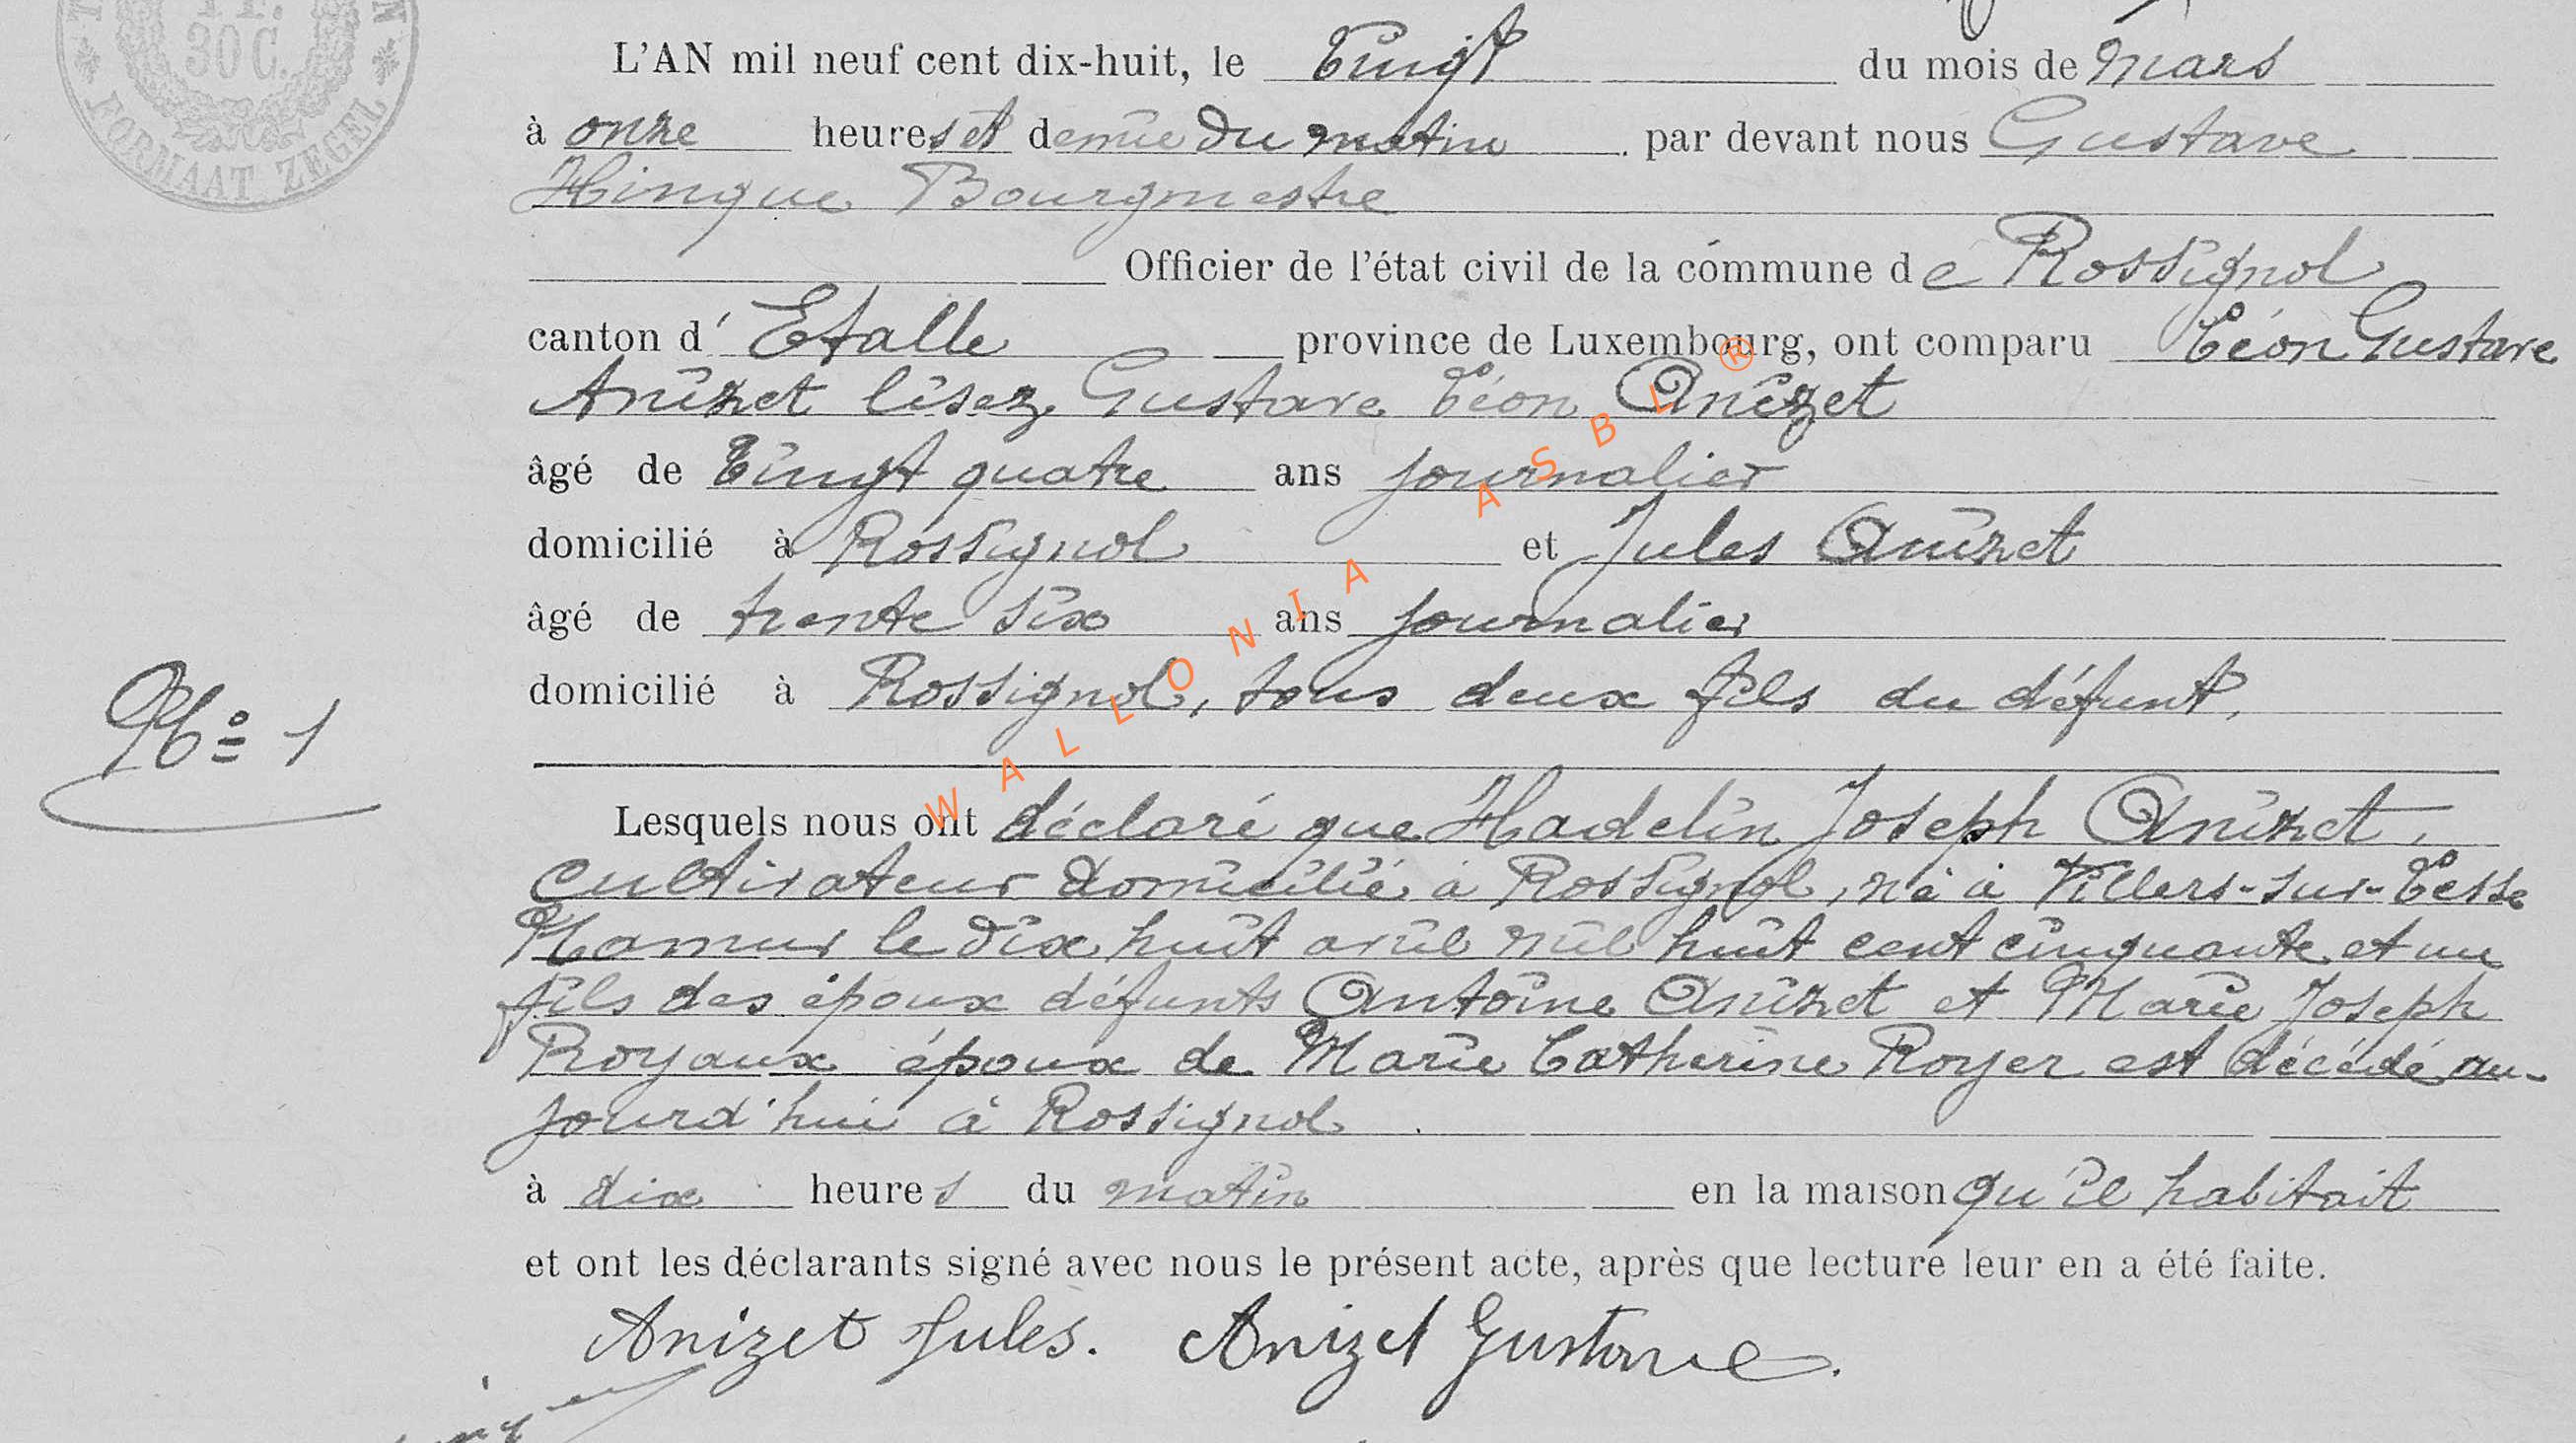 30 C.
FORMAAT ZEGEL
L'AN mil neuf cent dix-huit, le Vingt du mois de Mars
à onze heures et demie du matin par devant nous Gustave
Hinque Bourgmestre
Officier de l'état civil de la commune de Rossignol
canton d'Etalle province de Luxembourg, ont comparu Léon Gustave
Anizet lisez Gustave Léon Anizet
âgé de Vingt quatre ans journalier
domicilié à Rossignol et Jules Anizet
âgé de trente six ans journalier
domicilié à Rossignol, tous deux fils du défunt,
No 1
Lesquels nous ont déclaré que Hadelin Joseph Anizet,
cultivateur domicilié à Rossignol, né à Villers-sur-Lesse
Namur le dix huit avril mil huit cent cinquante et un
fils des époux défunts Antoine Anizet et Marie Joseph
Royaux époux de Marie Catherine Royer est décédé au-
jourd'hui à Rossignol
à dix heures du matin en la maison qu'il habitait
et ont les déclarants signé avec nous le présent acte, après que lecture leur en a été faite.
Anizet Jules. Anizet Gustave.
WALLONIA ASBL ®